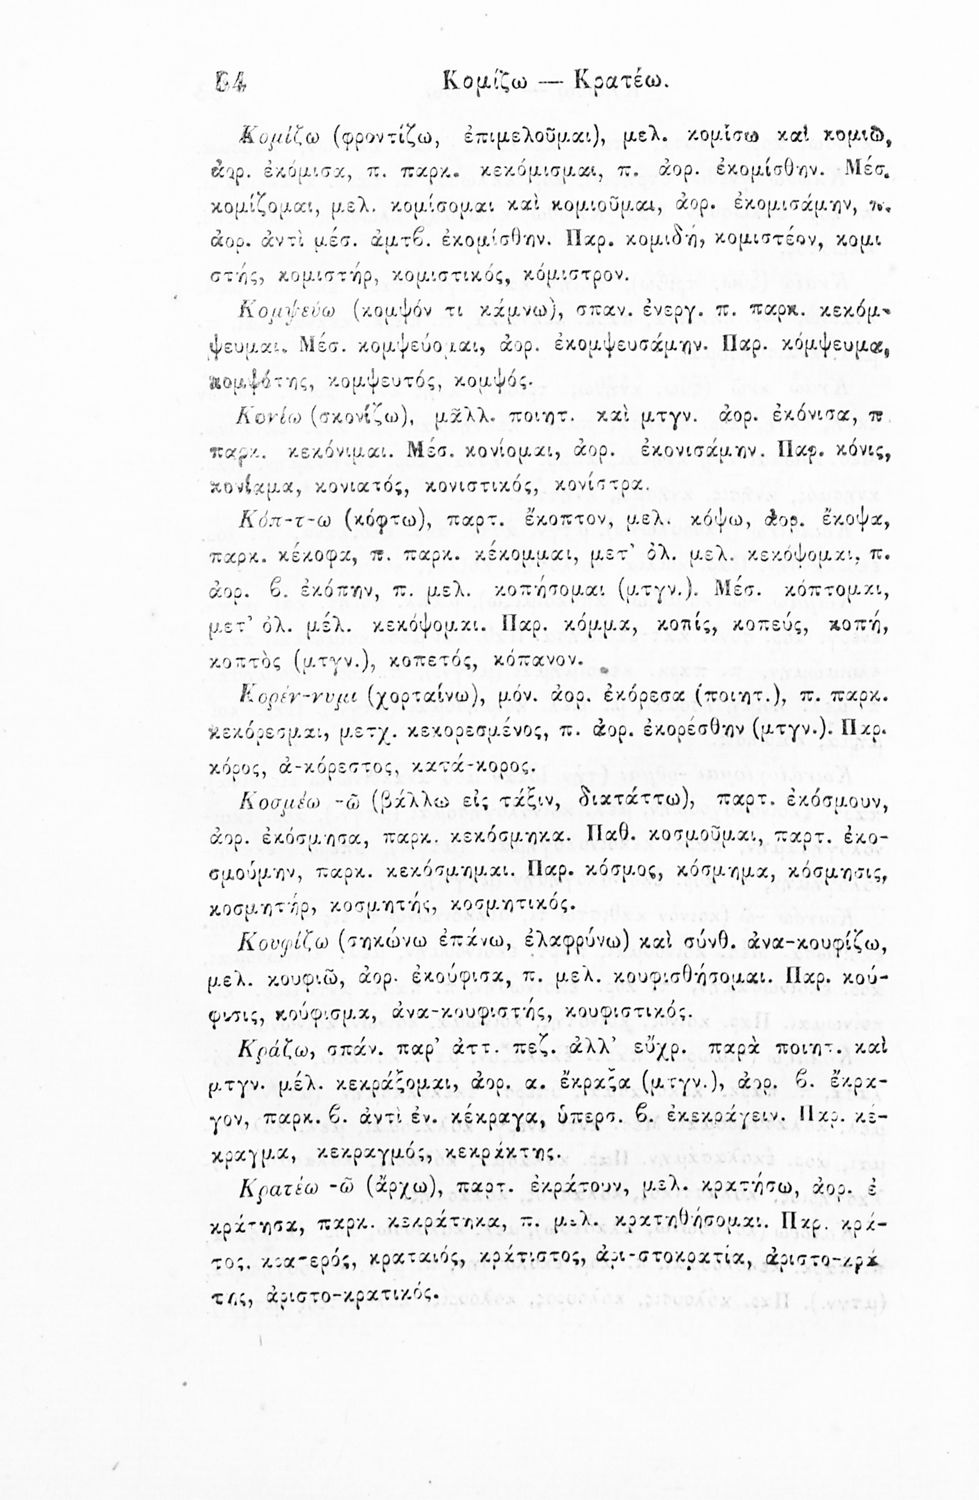 64 Κομίζω — Κρατέω.
Κομίζω (φροντίζω, ἐπιμελοῦμαι), μελ. κομίσω καὶ κομιῶ,
ἀορ. ἐκόμισα, π. παρκ. κεκόμισμαι, π. ἀορ. ἐκομίσθην. Μέσ.
κομίζομαι, μελ. κομίσομαι καὶ κομιοῦμαι, ἀορ. ἐκομισάμην, π.
ἀορ. ἀντὶ μέσ. ἀμτβ. ἐκομίσθην. Παρ. κομιδή, κομιστέον, κομι
στής, κομιστήρ, κομιστικός, κόμιστρον.
Κομψεύω (κομψόν τι κάμνω), σπαν. ἐνεργ. π. παρκ. κεκόμ-
ψευμαι. Μέσ. κομψεύομαι, ἀορ. ἐκομψευσάμην. Παρ. κόμψευμα,
κομψότης, κομψευτός, κομψός.
Κονίω (σκονίζω), μᾶλλ. ποιητ. καὶ μτγν. ἀορ. ἐκόνισα, π
παρκ. κεκόνιμαι. Μέσ. κονίομαι, ἀορ. ἐκονισάμην. Παρ. κόνις,
κονίαμα, κονιατός, κονιστικός, κονίστρα.
Κόπ-τ-ω (κόφτω), παρτ. ἔκοπτον, μελ. κόψω, ἀορ. ἔκοψα,
παρκ. κέκοφα, π. παρκ. κέκομμαι, μετ' ὀλ. μελ. κεκόψομαι, π.
ἀορ. β. ἐκόπην, π. μελ. κοπήσομαι (μτγν.). Μέσ. κόπτομαι,
μετ' ὀλ. μέλ. κεκόψομαι. Παρ. κόμμα, κοπίς, κοπεύς, κοπή,
κοπτὸς (μτγν.), κοπετός, κόπανον.
Κορέν-νυμι (χορταίνω), μόν. ἀορ. ἐκόρεσα (ποιητ.), π. παρκ.
κεκόρεσμαι, μετχ. κεκορεσμένος, π. ἀορ. ἐκορέσθην (μτγν.). Παρ.
κόρος, ἀ-κόρεστος, κατά-κορος.
Κοσμέω -ῶ (βάλλω εἰς τάξιν, διατάττω), παρτ. ἐκόσμουν,
ἀορ. ἐκόσμησα, παρκ. κεκόσμηκα. Παθ. κοσμοῦμαι, παρτ. ἐκο-
σμούμην, παρκ. κεκόσμημαι. Παρ. κόσμος, κόσμημα, κόσμησις,
κοσμητήρ, κοσμητής, κοσμητικός.
Κουφίζω (σηκώνω ἐπάνω, ἐλαφρύνω) καὶ σύνθ. ἀνα-κουφίζω,
μελ. κουφιῶ, ἀορ. ἐκούφισα, π. μελ. κουφισθήσομαι. Παρ. κού-
φισις, κούφισμα, ἀνα-κουφιστής, κουφιστικός.
Κράζω, σπάν. παρ' ἀττ. πεζ. ἀλλ' εὔχρ. παρὰ ποιητ. καὶ
μτγν. μέλ. κεκράξομαι, ἀορ. α. ἔκραξα (μτγν.), ἀορ. β. ἔκρα-
γον, παρκ. β. ἀντὶ ἐν. κέκραγα, ὑπερσ. β. ἐκεκράγειν. Παρ. κέ-
κραγμα, κεκραγμός, κεκράκτης.
Κρατέω -ῶ (ἄρχω), παρτ. ἐκράτουν, μελ. κρατήσω, ἀορ. ἐ
κράτησα, παρκ. κεκράτηκα, π. μελ. κρατηθήσομαι. Παρ. κρά-
τος, κρατερός, κραταιός, κράτιστος, ἀρι-στοκρατία, ἀριστο-κρά
της, ἀριστο-κρατικός.